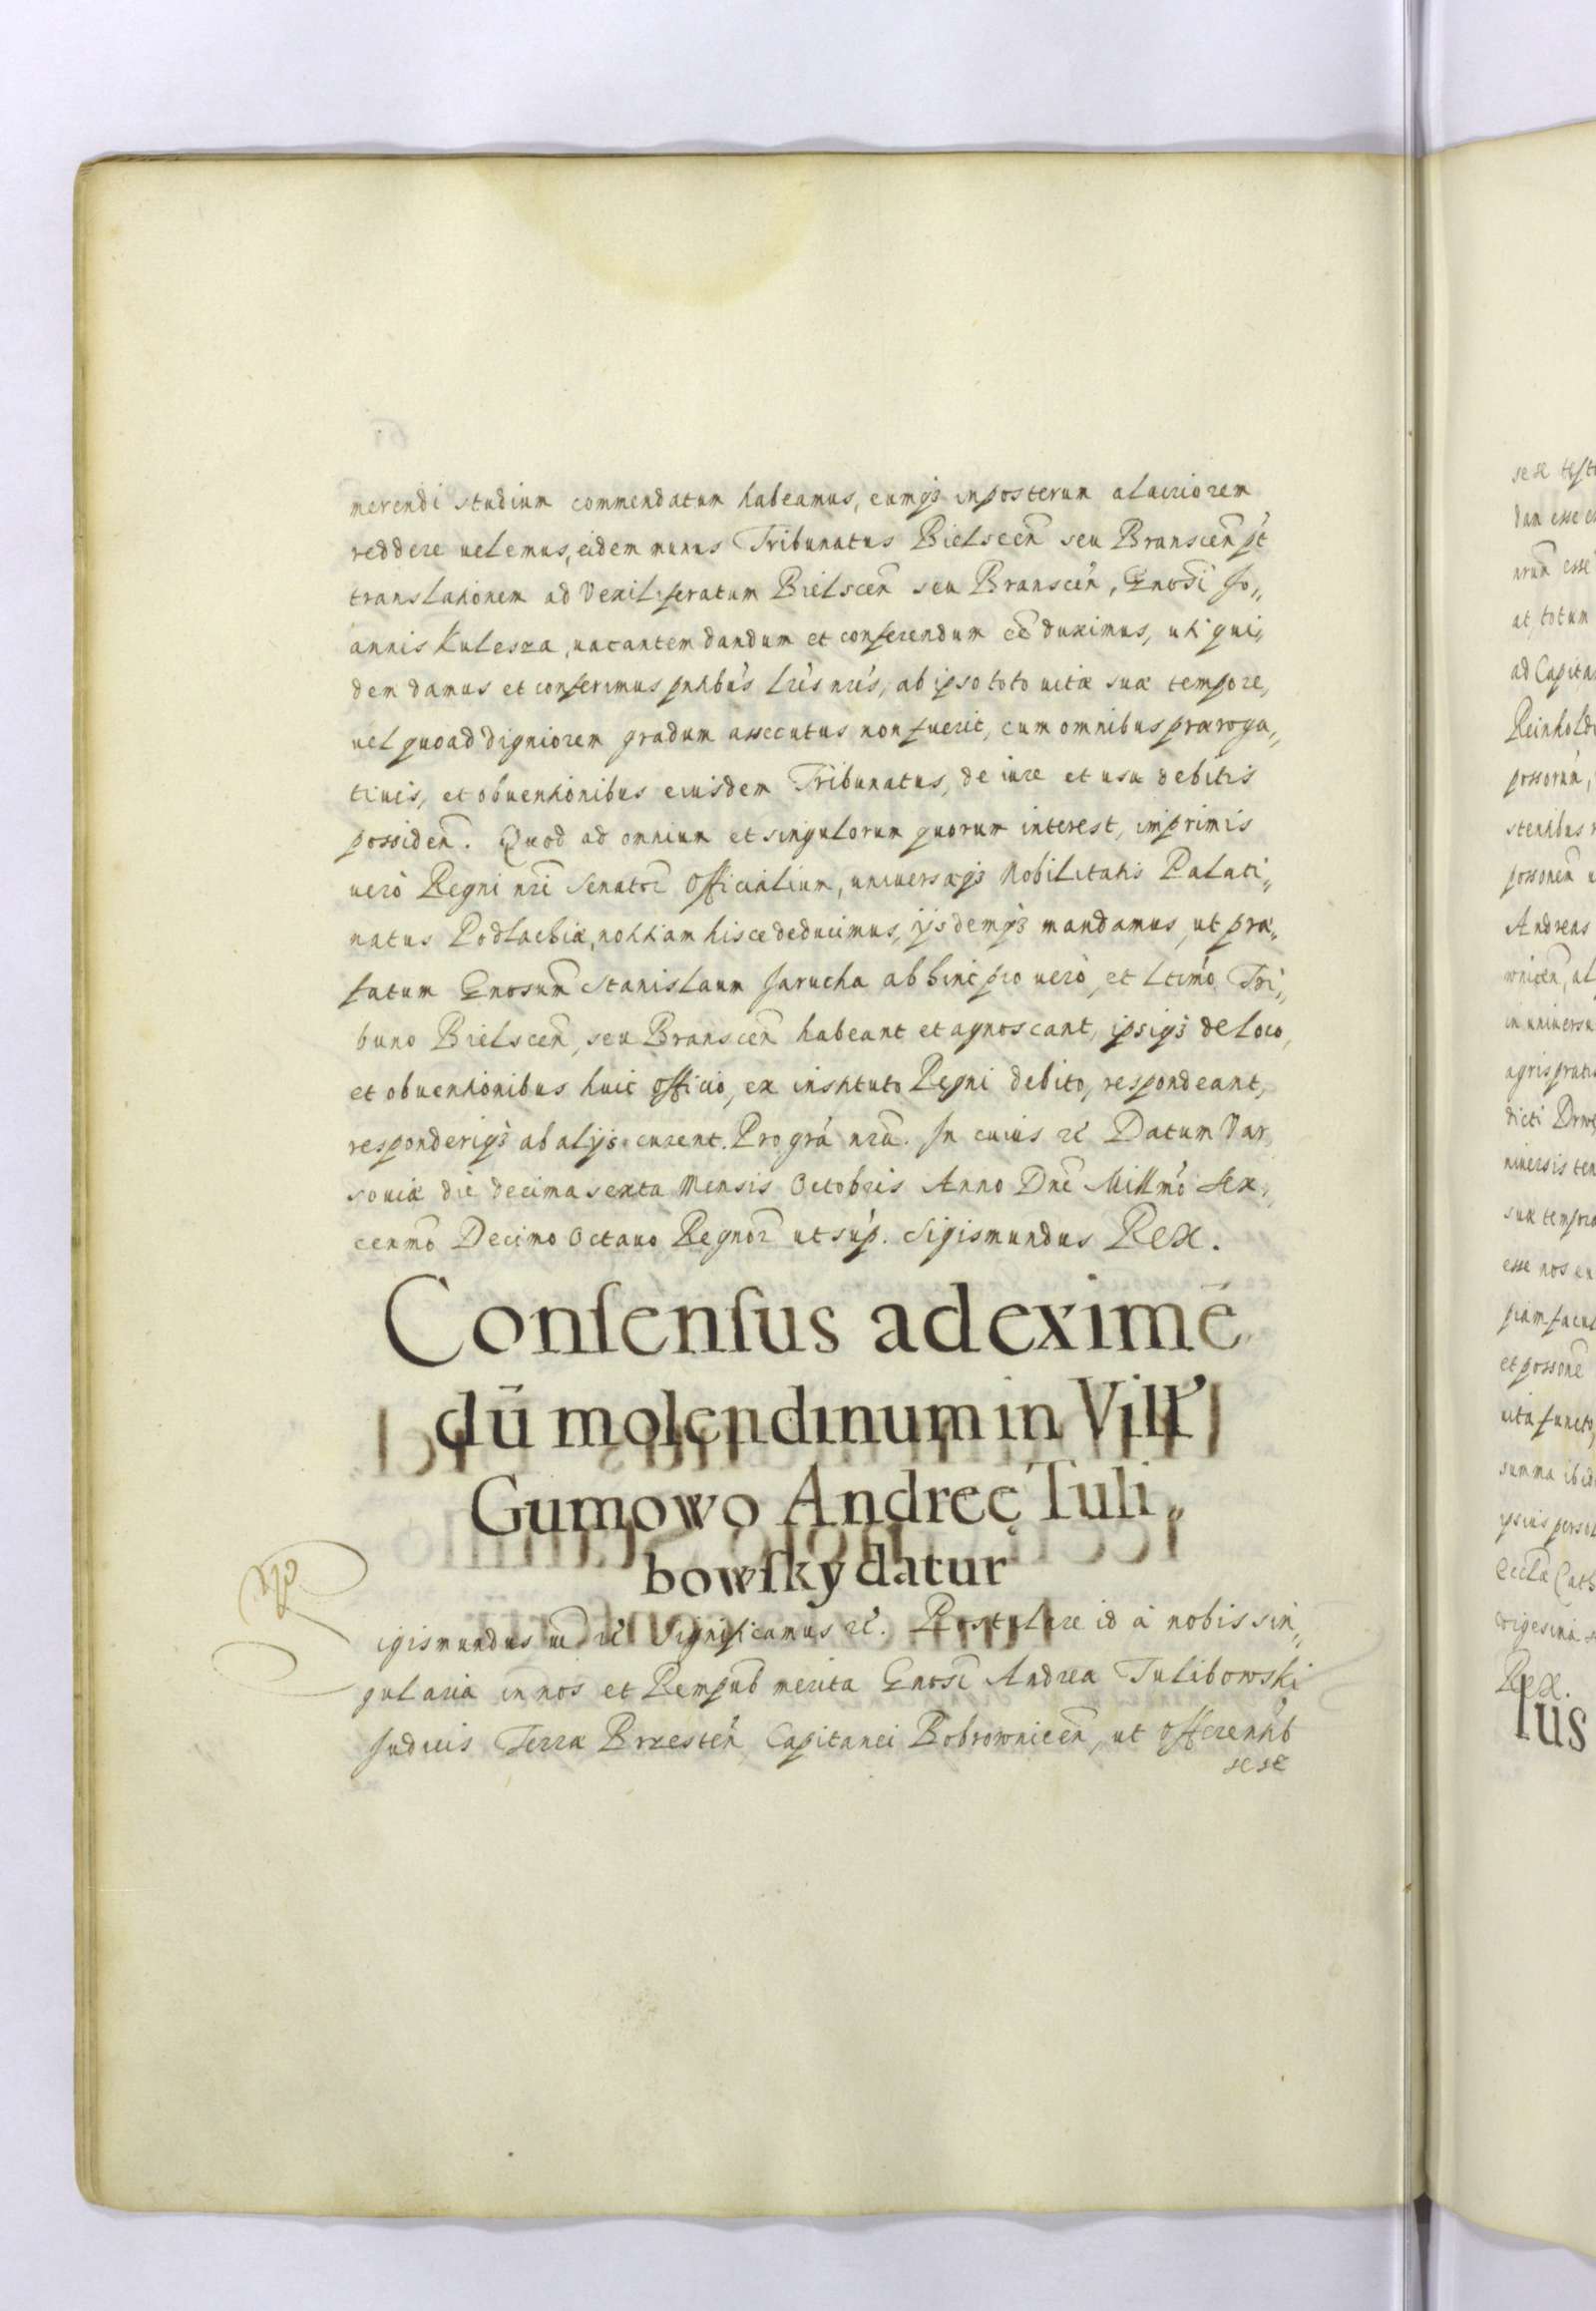 merendi studium commendatum habeamus, eumq3 inposterum alacriorem
reddere uelemus, eidem munus Tribunatus Bielscen̄ seu Branscen̄ p̄t
translationem ad Vexiliferatum Bielscen̄ seu Branscen̄, Gnosi Jo„
annis Kulesza, uacantem dandum et conferendum eē duximus, uti qui„
dem damus et conferimus pn̄tibus lr̄is nr̄is, ab ipso toto uitæ suæ tempore,
uel quoad digniorem gradum assecutus non fuerit, cum omnibus præroga„
tiuis, et obuentionibus eiusdem Tribunatus, de iure et usu debitis
possiden̄. Quod ad omnium et singulorum quorum interest, imprimis
uerò Regni nr̄i Senator̄ Officialium, uniuersæq3 Nobilitatis Palati„
natus Podlachiæ, notitiam hisce deducimus, ijsdemq3 mandamus, ut præ„
fatum Gnosum̄ Stanislaum Jarucha ab hinc pro uerò, et ltimo Tri„
buno Bielscen̄, seu Branscen̄ habeant et agnoscant, ipsiq3 de loco,
et obuentionibus huic officio, ex instituto Regni debito, respondeant,
responderiq3 ab alijs curent. Pro grā nrā. In cuius rē Datum Var„
souiæ die decima sexta Mensis Octobris Anno Dnī Millmo Sex„
cenmo Decimo Octauo Regnor̄ ut sup. Sigismundus Rex.
Conſenſus ad eximē„
dū molendinum in Vill'
Gumowo Andreę Tuli„
bowſky datur
igismundus III rē Significamus rē. Postulare id à nobis sin„
gularia in nos et Rempub merita Gnosi Andreæ Tulibowski
Judicis Terræ Brzesten̄, Capitanei Bobrownicen̄, ut offerentib
sese
sese
dam esse
nrum̄ esse
at, totum
ad
Reinhold
possorum̄,
possonem
Andreas
wnicen̄, al
in uniuersu
agris pratis
dicti
niuersis
suæ
esse nos
piam
et
uita functo,
summa
ipsius
Rex.
Ius